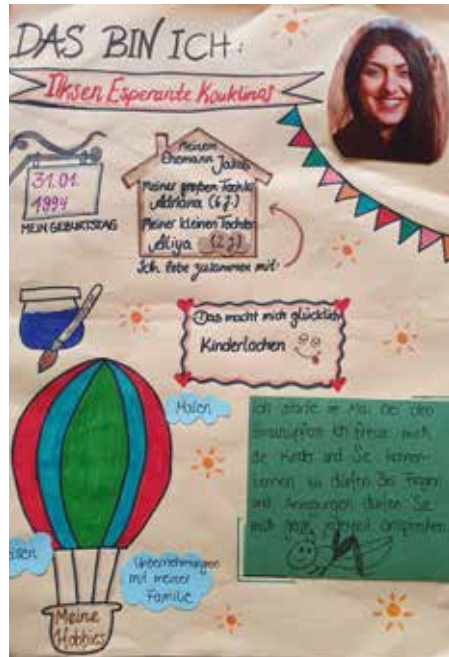 DAS BIN ICH:
Ilksen Esperante Kouklinas
31.01.
1994
MEIN GEBURTSTAG
Meinem
Ehemann Jakob
Meiner großen Tochter
Adriana (6 J.)
Meiner kleinen Tochter
Aliya (2 J)
Ich lebe zusammen mit:
Das macht mich glücklich
Kinderlachen
Malen
Ich starte im Mai bei den
Ich freue mich
die Kinder und Sie kennen-
lernen zu dürfen. Bei Fragen
und Anregungen dürfen Sie
mich jederzeit ansprechen
isen
Unternehmungen
mit meiner
Familie
Meine
Hobbies